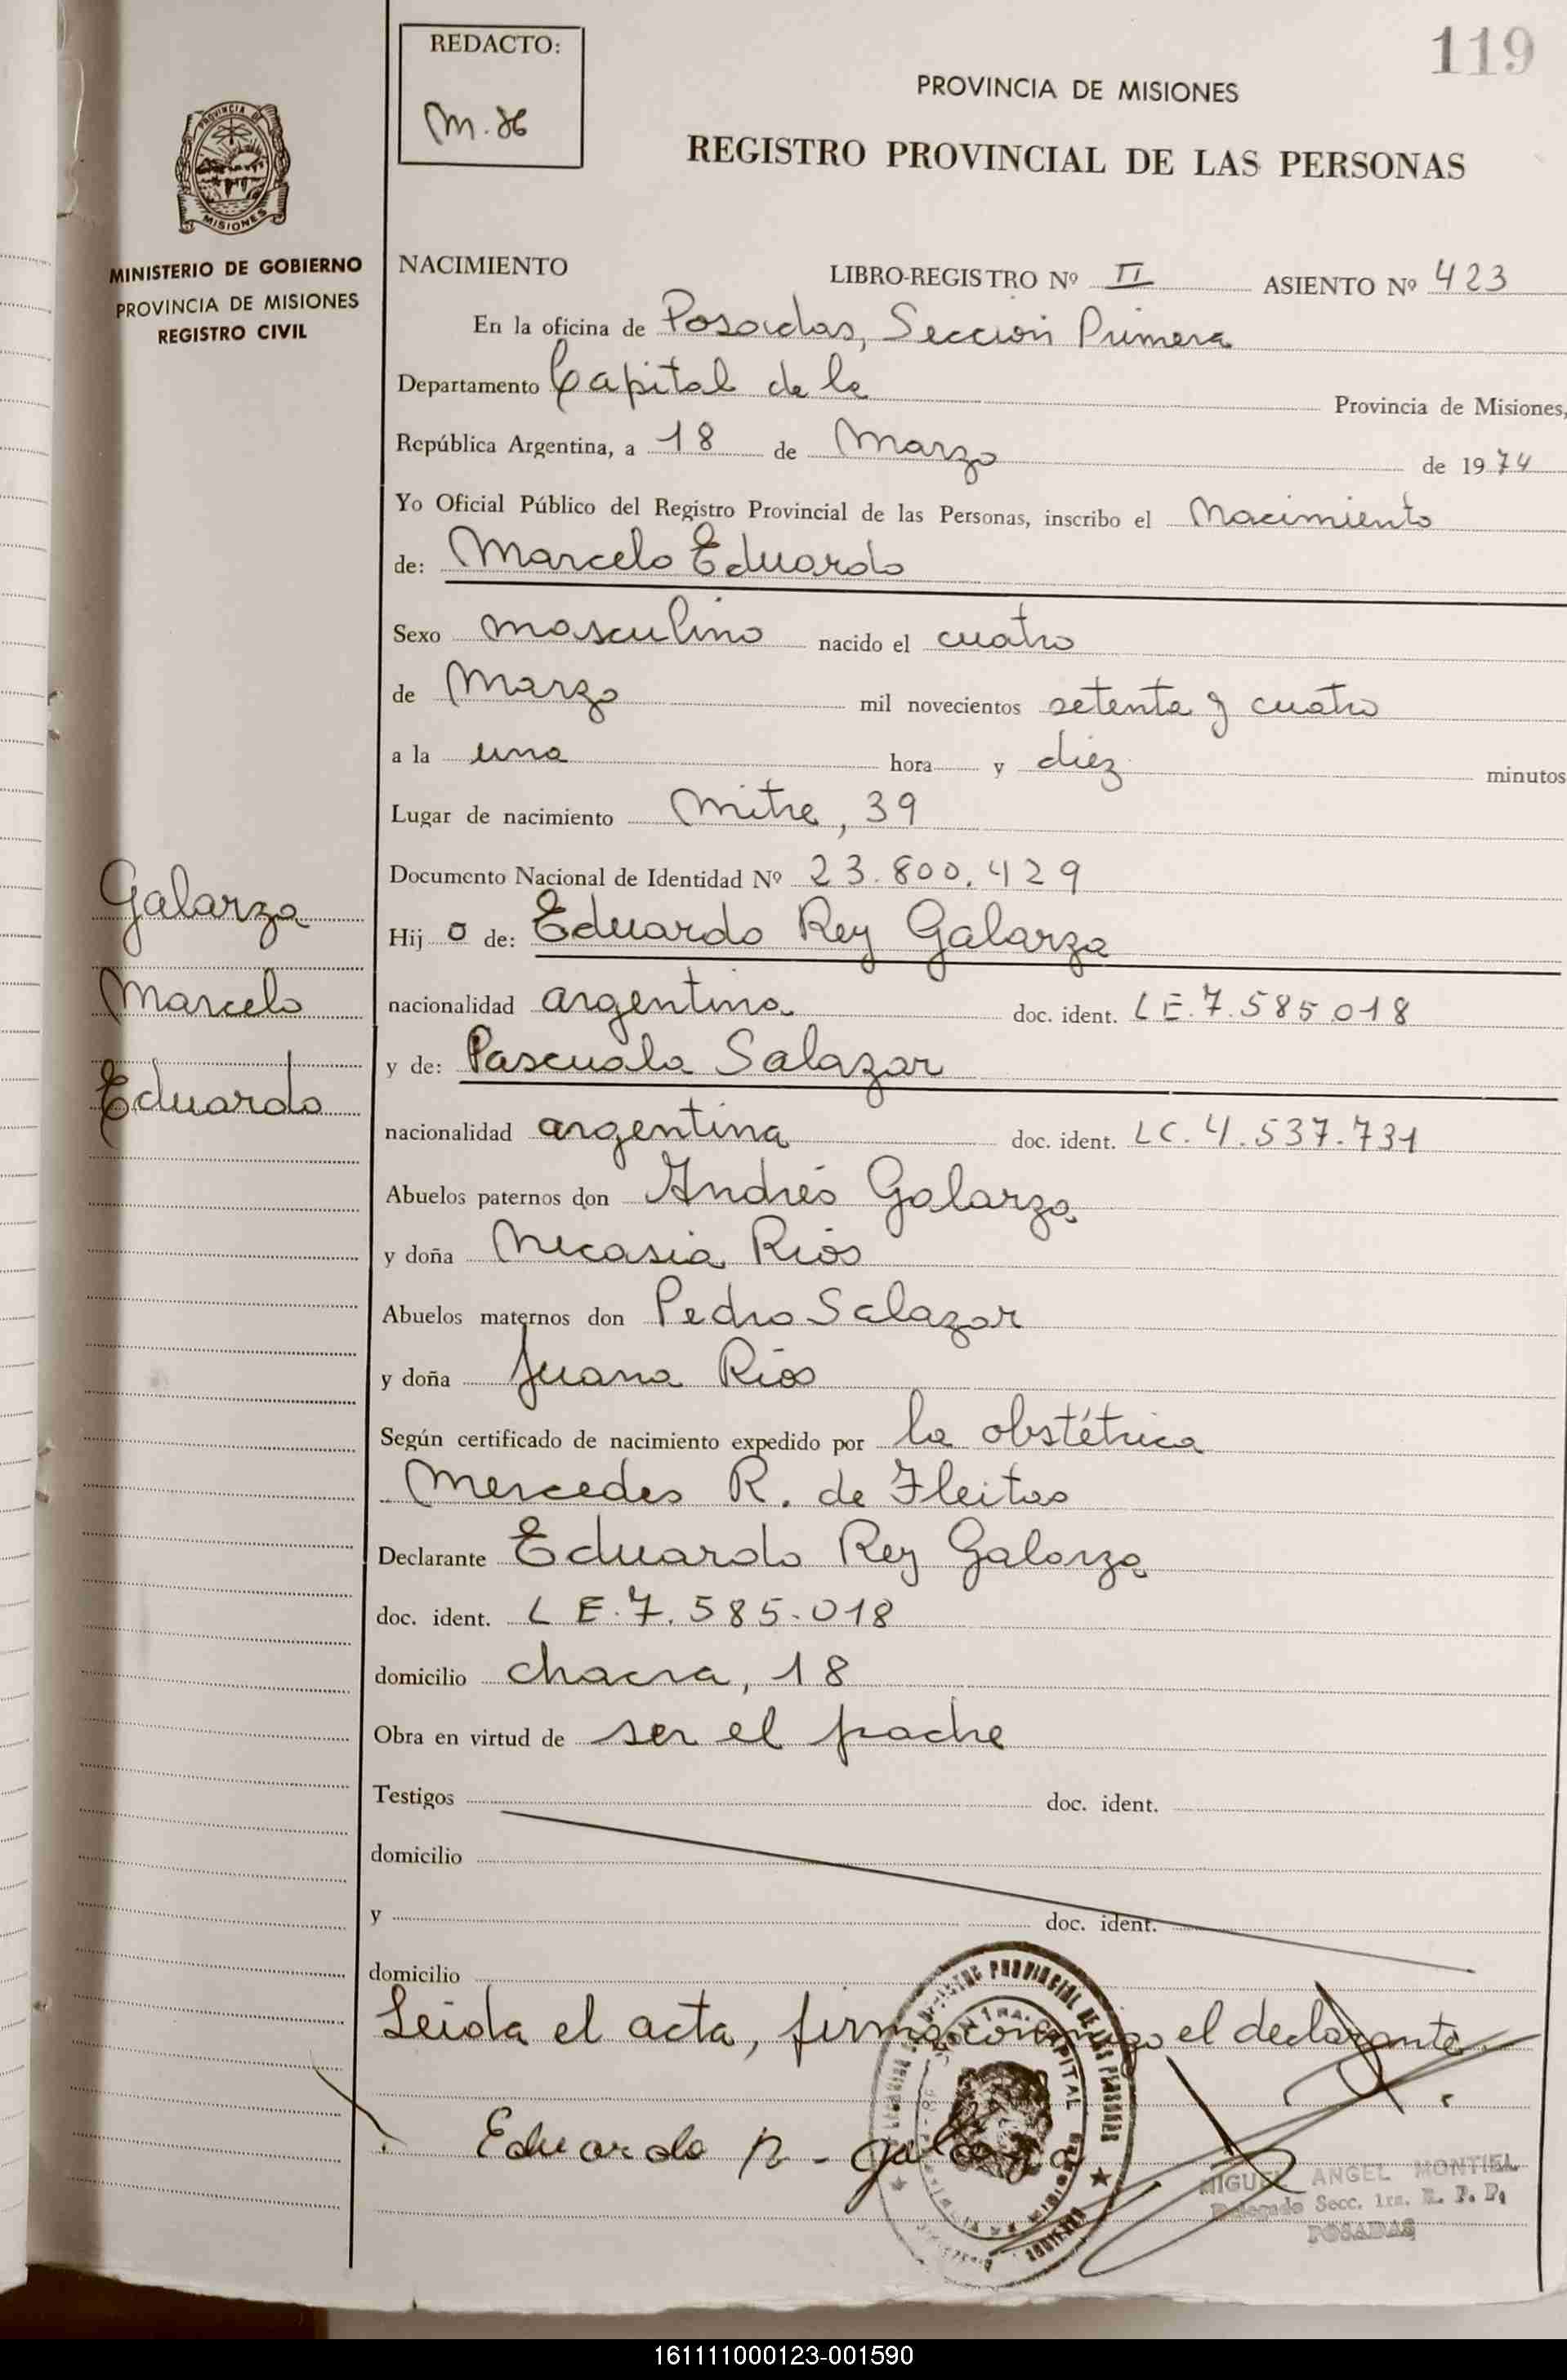 119
REDACTO:
M.
PROVINCIA DE MISIONES
REGISTRO PROVINCIAL DE LAS PERSONAS
PROVINCIA DE
MISIONES
MINISTERIO DE GOBIERNO
PROVINCIA DE MISIONES
REGISTRO CIVIL
NACIMIENTO LIBRO-REGISTRO Nº II ASIENTO Nº 423
En la oficina de Posadas, Sección Primera
Departamento Capital de la Provincia de Misiones,
República Argentina, a 18 de Marzo de 1974
Yo Oficial Público del Registro Provincial de las Personas, inscribo el Nacimiento
de: Marcelo Eduardo
Sexo masculino nacido el cuatro
de Marzo mil novecientos setenta y cuatro
a la una hora y diez minutos
Lugar de nacimiento Mitre, 39
Documento Nacional de Identidad Nº 23.800.429
Hij o de: Eduardo Rey Galarza
nacionalidad argentina doc. ident. LE.7.585.018
y de: Pascuala Salazar
nacionalidad argentina doc. ident. LC.4.537.731
Abuelos paternos don Andrés Galarza
y doña Necasia Ríos
Abuelos maternos don Pedro Salazar
y doña Juana Ríos
Según certificado de nacimiento expedido por la obstétrica
Mercedes R. de Fleitas
Declarante Eduardo Rey Galarza
doc. ident. L E.7.585.018
domicilio chacra, 18
Obra en virtud de ser el padre
Testigos doc. ident.
domicilio
y doc. ident.
domicilio
Leída el acta, firma conmigo el declarante.
Eduardo R - galarza
MIGUEL ANGEL MONTIEL
Delegado Secc. 1ra. R. P. P.
POSADAS
Galarza
Marcelo
Eduardo
161111000123-001590